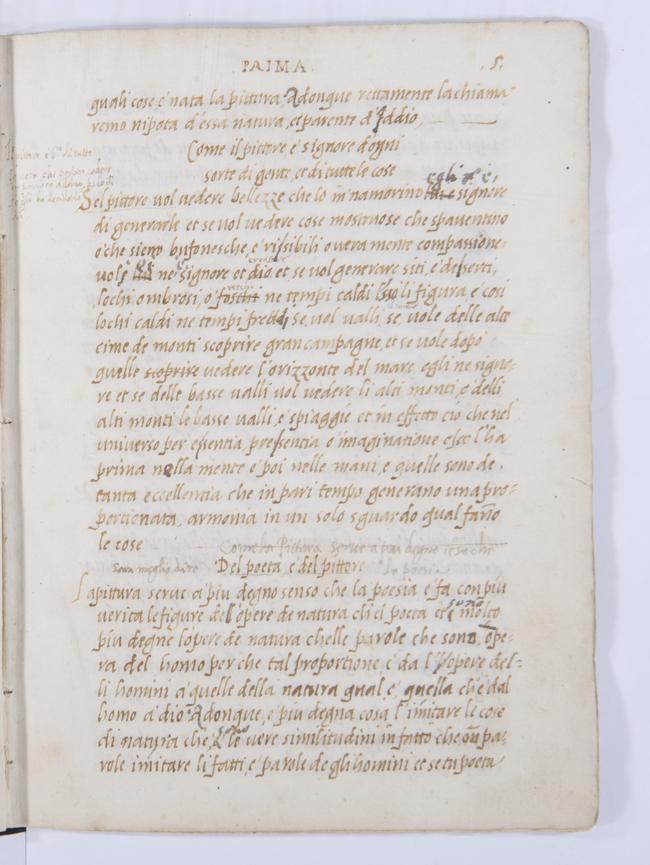 PRIMA
.5.
quali cose, e' nata la pittura Adonque rettamente la chiama=
remo nipota d'essa natura, et parente d'Iddio,
Come il pittore, e' signore d'ogni
sorte di gente, et di tutte le cose
Sel pittore vol vedere bellezze che lo in'namorino egli n'e' signore
di generarle et se vol vedere cose mostruose che spaventino
o' che sieno buffonesche, e' rissibili o veramente compassione=
vole ne' signore et dio et se vol generare siti, e' deserti,
lochi ombrosi, o' foschi ne tempi caldi esso li figura, e' cosi
lochi caldi ne tempi freddi se, vol valli, se, vole delle alte
cime de monti scoprire gran campagne, et se vole dopo
quelle scoprire vedere l'orizzonte del mare egli ne signo=
re et se delle basse valli vol vedere li alti monti, o' delli
alti monti le basse valli, e' spiaggie et in effetto cio che nel
universo per essentia, pressentia o' imaginatione esso l'ha
prima nella mente e' poi nelle mani, e' quelle sono de,
tanta eccellentia che in pari tempo generano una pro=
portionata, armonia in un solo sguardo qual fano
le cose
Come la Pittura serve a piu degno senso che
la poesia
sara meglio dire
Del poeta, e' del pittore
La pittura serve a' piu degno senso che la poesia e' fa con piu
verita le figure del'opere de natura ch'el poeta et sono molto
piu degne l'opere de natura chelle parole che sono, ope=
ra del homo per che tal proportione, e' da l'opere del=
li homini a' quelle della natura qual, e', quella che' dal
homo a' dio Adonque, e' piu degna cosa l'imitare le cose
di natura che sono le vere similitudini in fatto che con pa=
role imitare li fatti, e' parole de gli homini et se tu poeta